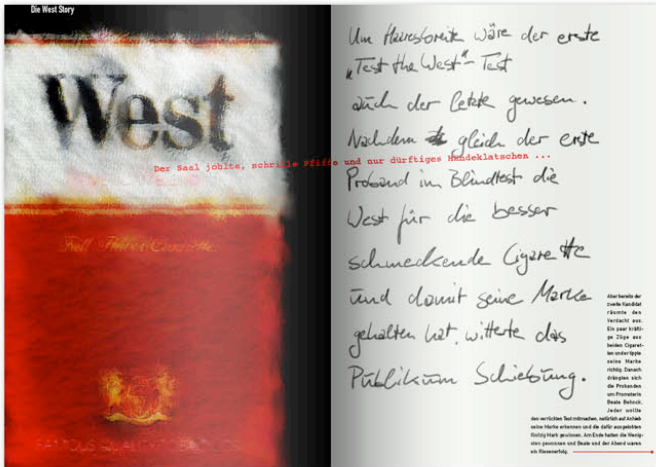 Die West Story
West
Full Flavor Cigarettes
Um Haaresbreite wäre der erste
„Test the West"-Test
auch der letzte gewesen.
Nachdem gleich der erste
Der Saal johlte, schrille Pfiffe und nur dürftiges Händeklatschen ...
Proband im Blindtest die
West für die besser
schmeckende Cigarette
und damit seine Marke
gehalten hat, witterte das
Publikum Schiebung.
Aber bereits der
zweite Kandidat
räumte den
Verdacht aus.
Ein paar kräfti-
ge Züge aus
beiden Cigaret-
ten und er tippte
seine Marke
richtig. Danach
drängten sich
die Probanden
um Promoterin
Beate
Jeder wollte
den verrückten Test mitmachen, natürlich auf Anhieb
seine Marke erkennen und die dafür ausgelobten
fünfzig Mark gewinnen. Am Ende hatten die Wenig-
sten gewonnen und Beate und der Abend waren
ein Riesenerfolg.